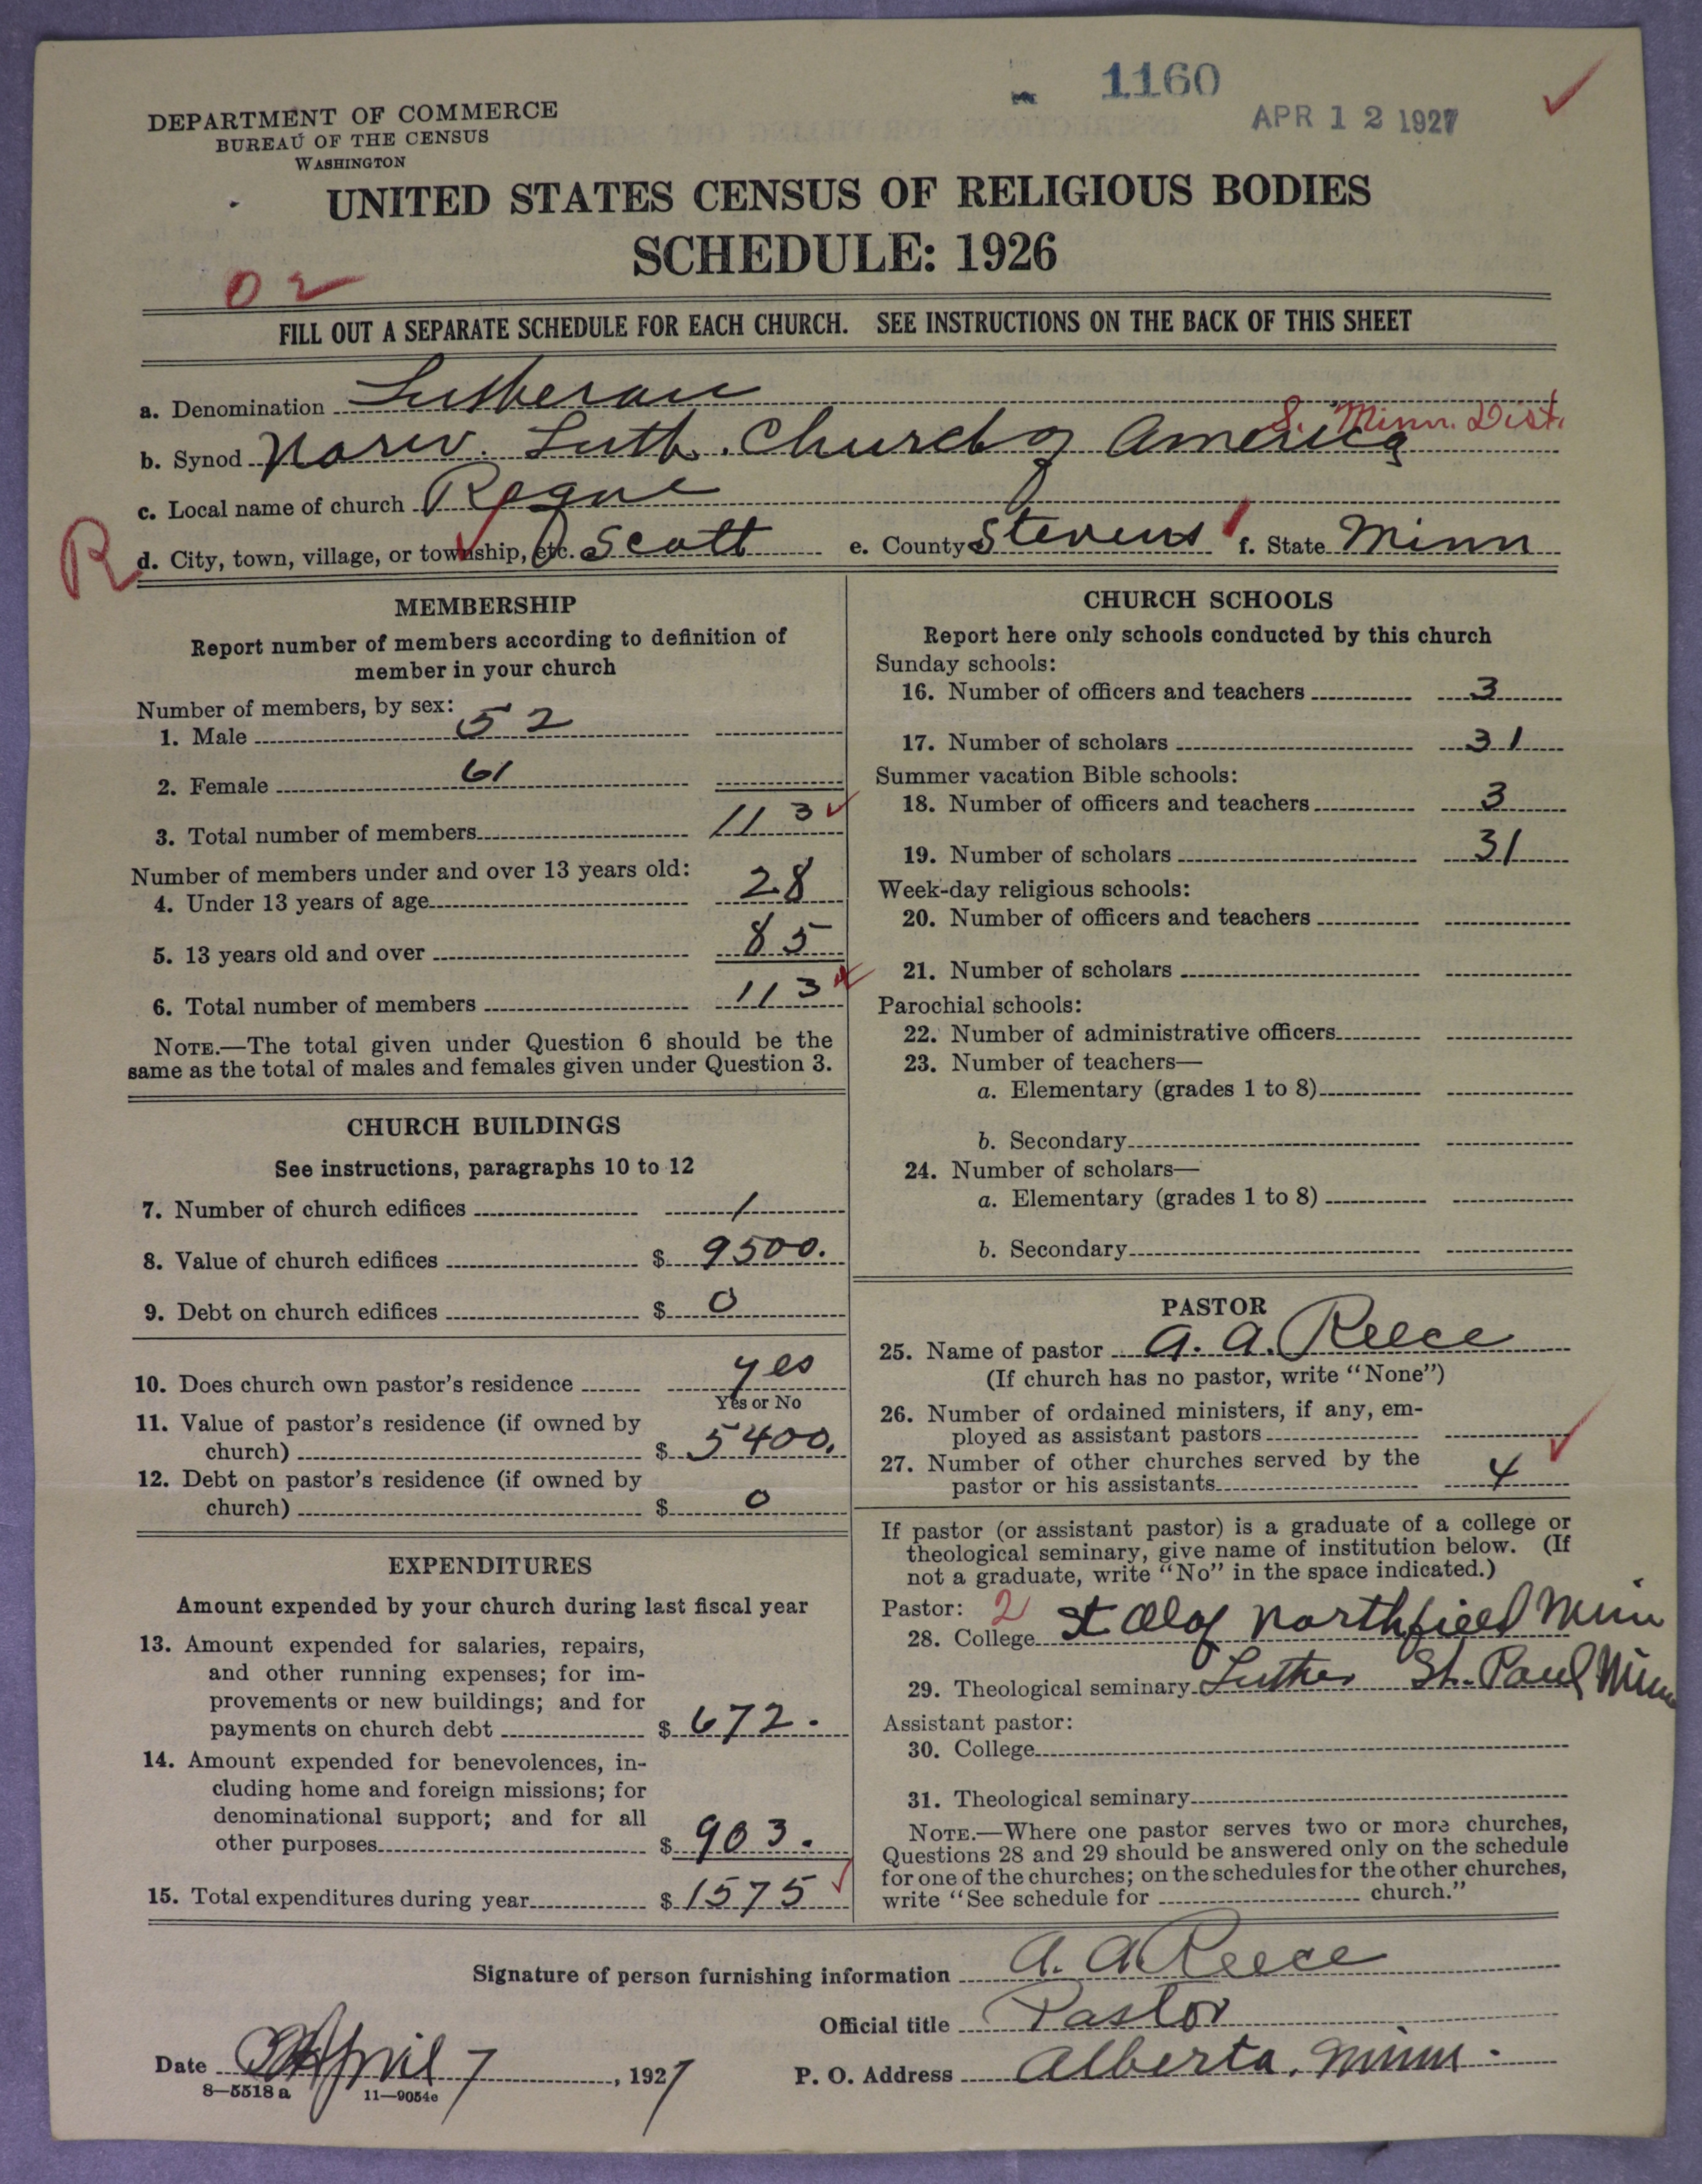 1160
APR 12 1927
DEPARTMENT OF COMMERCE
BUREAU OF THE CENSUS
WASHINGTON
UNITED STATES CENSUS OF RELIGIOUS BODIES
SCHEDULE: 1926
02
FILL OUT A SEPARATE SCHEDULE FOR EACH CHURCH. SEE INSTRUCTIONS ON THE BACK OF THIS SHEET
a. Denomination Lutheran
S. Minn. Dist.
b. Synod Norw. Luth. Church of America
c. Local name of church Rogne
R d. City, town, village, or township, etc. Scott e. County Stevens f. State Minn
MEMBERSHIP
Report number of members according to definition of
member in your church
Number of members, by sex:
1. Male 52
2. Female 61
3. Total number of members 113
Number of members under and over 13 years old:
4. Under 13 years of age 28
5. 13 years old and over 85
6. Total number of members 113
NOTE.—The total given under Question 6 should be the
same as the total of males and females given under Question 3.
CHURCH BUILDINGS
See instructions, paragraphs 10 to 12
7. Number of church edifices 1
8. Value of church edifices $ 9500.
9. Debt on church edifices $ 0
10. Does church own pastor's residence yes
Yes or No
11. Value of pastor's residence (if owned by
church) $ 5400.
12. Debt on pastor's residence (if owned by
church) $ 0
EXPENDITURES
Amount expended by your church during last fiscal year
13. Amount expended for salaries, repairs,
and other running expenses; for im-
provements or new buildings; and for
payments on church debt $ 672.
14. Amount expended for benevolences, in-
cluding home and foreign missions; for
denominational support; and for all
other purposes $ 903.
15. Total expenditures during year $ 1575
CHURCH SCHOOLS
Report here only schools conducted by this church
Sunday schools:
16. Number of officers and teachers 3
17. Number of scholars 31
Summer vacation Bible schools:
18. Number of officers and teachers 3
19. Number of scholars 31
Week-day religious schools:
20. Number of officers and teachers
21. Number of scholars
Parochial schools:
22. Number of administrative officers
23. Number of teachers—
a. Elementary (grades 1 to 8)
b. Secondary
24. Number of scholars—
a. Elementary (grades 1 to 8)
b. Secondary
PASTOR
25. Name of pastor A. A. Reece
(If church has no pastor, write "None")
26. Number of ordained ministers, if any, em-
ployed as assistant pastors
27. Number of other churches served by the
pastor or his assistants 4
If pastor (or assistant pastor) is a graduate of a college or
theological seminary, give name of institution below. (If
not a graduate, write "No" in the space indicated.)
Pastor: 2
28. College St Olaf Northfield Minn
29. Theological seminary Luther St. Paul Minn
Assistant pastor:
30. College
31. Theological seminary
NOTE.—Where one pastor serves two or more churches,
Questions 28 and 29 should be answered only on the schedule
for one of the churches; on the schedules for the other churches,
write "See schedule for church."
Signature of person furnishing information A. A. Reece
Official title Pastor
Date April 7, 1927
P. O. Address Alberta, Minn.
8—5518a 11—9054e